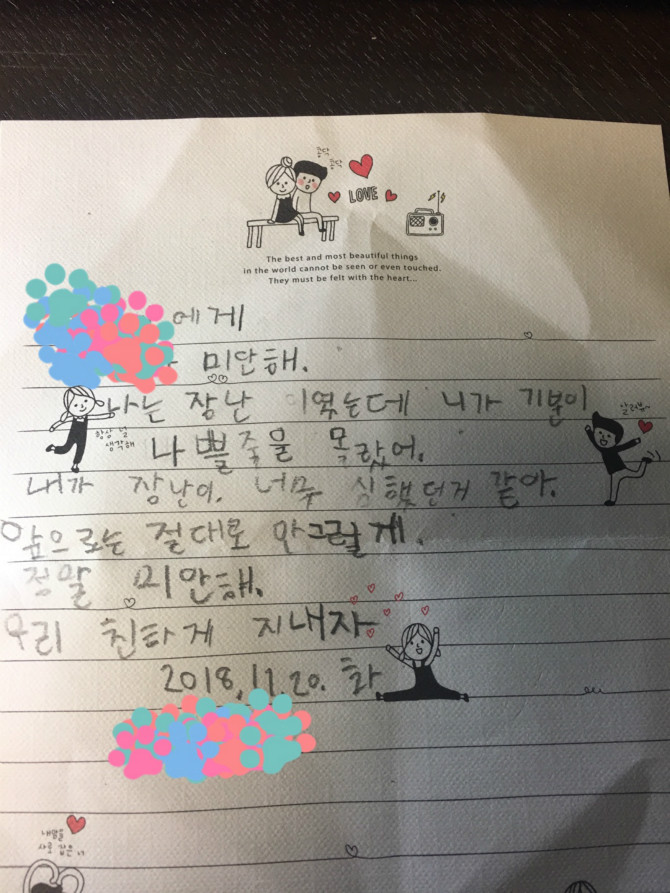 콩닥
콩닥
LOVE
The best and most beautiful things
in the world cannot be seen or even touched.
They must be felt with the heart...
에게
미안해.
나는 장난 이였는데 니가 기분이
알러뷰
항상 널
생각해
나쁠줄을 몰랐어.
내가 장난이. 너무 심했던거 같아.
앞으로는 절대로 안그럴게.
정말 미안해.
우리 친하게 지내자
2018.11.20. 화